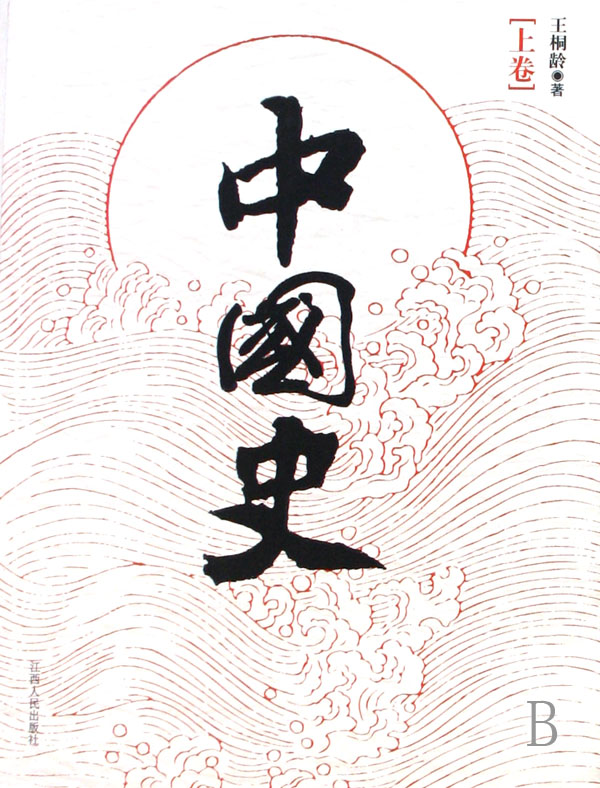 王桐龄◉著
[上卷]
中國史
江西人民出版社
B